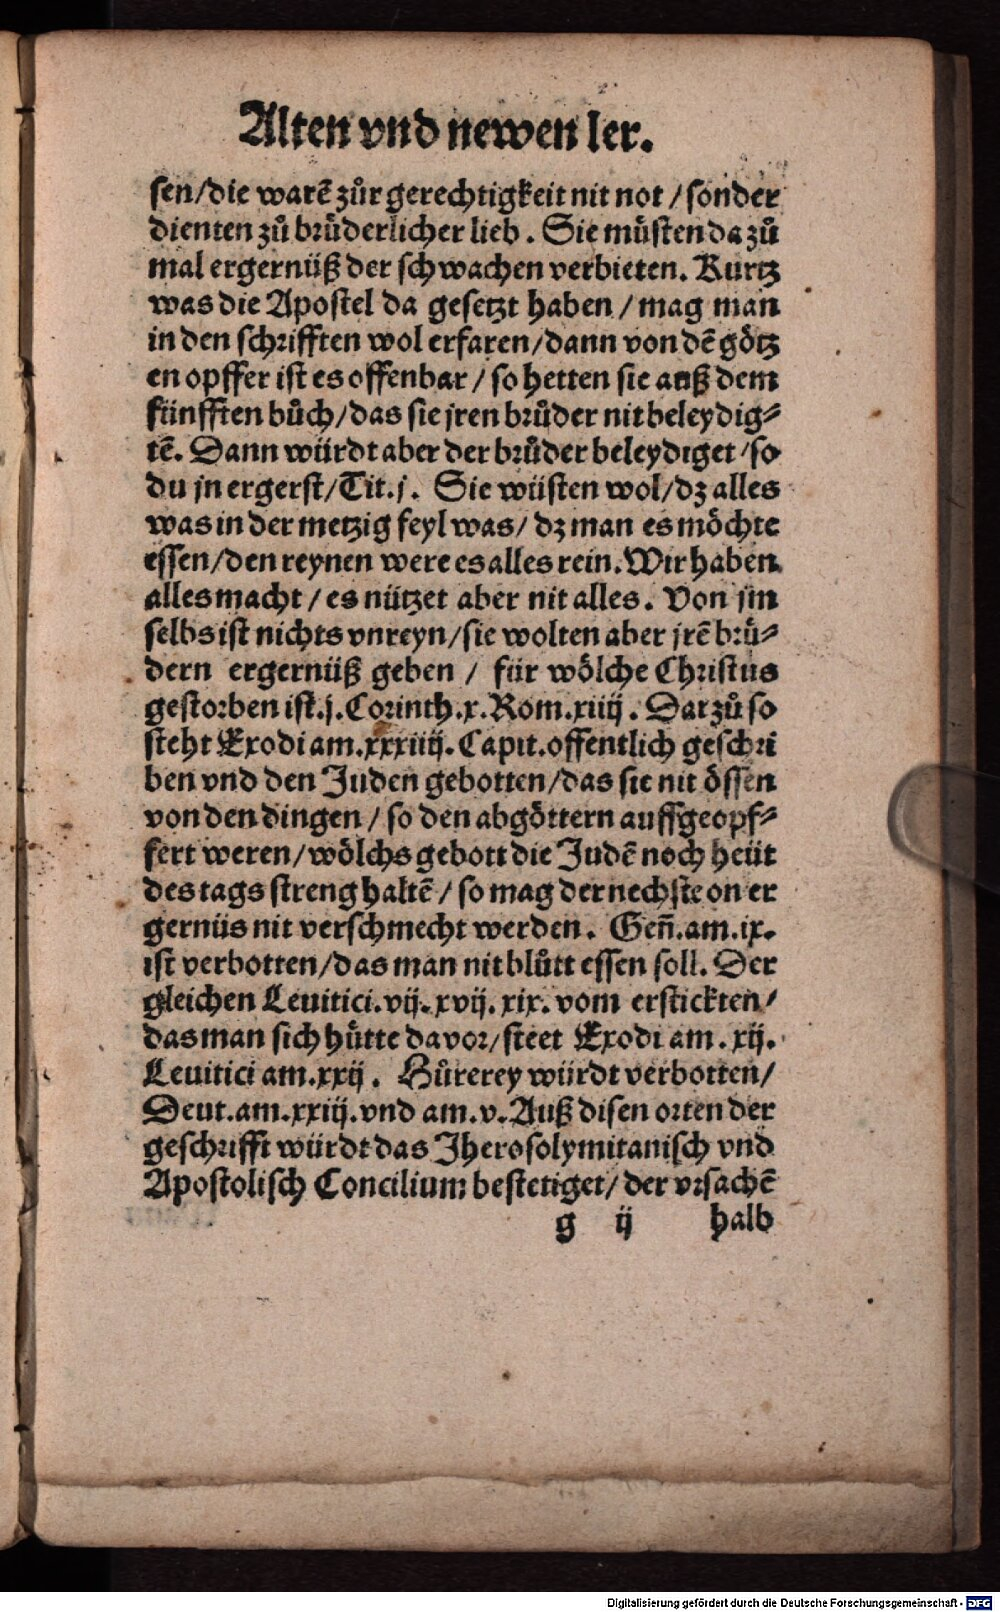 Alten vnd newen ler.
sen/die warē zůr gerechtigkeit nit not / sonder
dienten zů brůderlicher lieb. Sie můsten da zů
mal ergernüß der schwachen verbieten. Kurtz
was die Apostel da gesetzt haben / mag man
in den schrifften wol erfaren/dann von dē götz
en opffer ist es offenbar / so hetten sie auß dem
fünfften bůch/das sie jren brůder nit beleydig⸗
tē. Dann würdt aber der brůder beleydiget /so
du jn ergerst/Tit.j. Sie wüsten wol/dz alles
was in der metzig feyl was/ dz man es möchte
essen/den reynen were es alles rein. Wir haben
alles macht / es nützet aber nit alles. Von jm
selbs ist nichts vnreyn/sie wolten aber jrē brü⸗
dern ergernüß geben / für wölche Christus
gestorben ist.j.Corinth.x.Rom.xiiij. Dar zů so
steht Exodi am.xxxiiij.Capit.offentlich geschri
ben vnd den Juden gebotten/das sie nit össen
von den dingen / so den abgöttern auffgeopf⸗
fert weren/wölchs gebott die Judē noch heüt
des tags streng haltē / so mag der nechste on er
gernüs nit verschmecht werden. Geñ.am.ix.
ist verbotten/das man nit blůtt essen soll. Der
gleichen Leuitici.vij.xvij.xix.vom erstickten/
das man sich hütte davor/steet Exodi am.xij.
Leuitici am.xxij. Hůrerey würdt verbotten/
Deut.am.xxiij.vnd am.v.Auß disen orten der
geschrifft würdt das Jherosolymitanisch vnd
Apostolisch Concilium bestetiget/der vrsachē
g ij halb
Digitalisierung gefördert durch die Deutsche Forschungsgemeinschaft - DFG